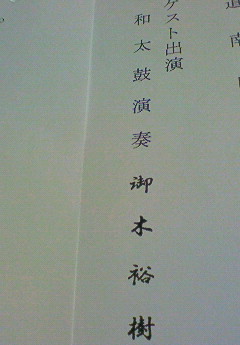 ゲスト出演
和太鼓演奏 御木裕樹